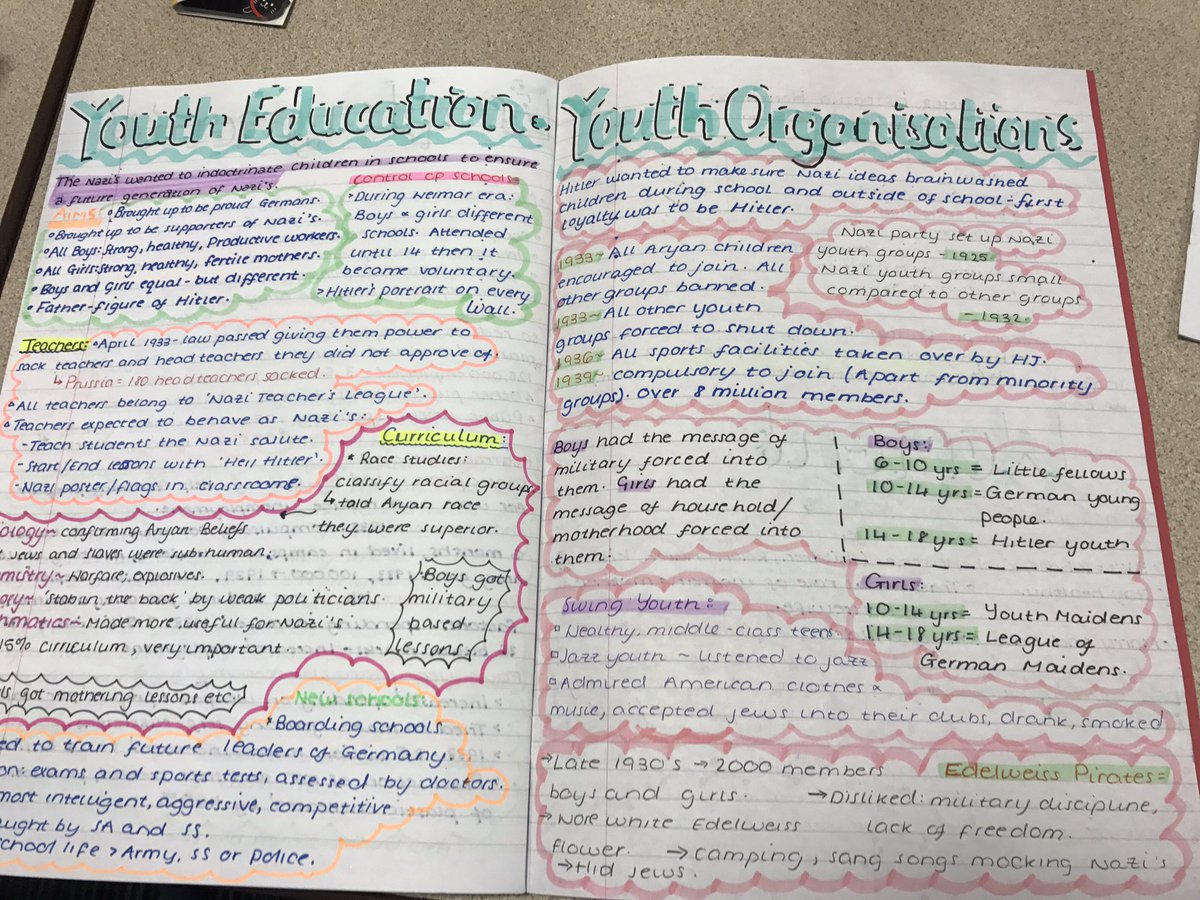 Youth Education.
The Nazi's wanted to indoctrinate children in schools to ensure
a future generation of Nazi's.
Aims:
• Brought up to be proud Germans.
• Brought up to be supporters of Nazi's.
• All Boys: Strong, healthy, Productive workers.
• All Girls: Strong, healthy, fertile mothers.
• Boys and Girls equal - but different.
• Father-figure of Hitler.
Control of schools=
• During Weimar era:
Boys & girls different
schools. Attended
until 14 then it
became voluntary.
> Hitler's portrait on every
wall.
Teachers: • April 1933 - law passed giving them power to
sack teachers and head teachers they did not approve of.
↳ Prussia = 180 head teachers sacked.
• All teachers belong to 'Nazi Teacher's League'.
• Teachers expected to behave as Nazi's:
- Teach students the Nazi salute.
- Start/End lessons with 'Heil Hitler'.
- Nazi poster/flags in classrooms.
Curriculum:
* Race studies:
classify racial groups
↳ told Aryan race
they were superior.
ology ~ confirming Aryan Beliefs
Jews and slaves were subhuman.
mistry ~ Warfare, explosives.
ory ~ 'Stab in the back' by weak politicians.
hmatics ~ Made more useful for Nazi's
15% cirriculum, very important.
Boys got
military
based
Lessons
ls got mothering lessons etc.
New schools:
* Boarding schools
ed to train future leaders of Germany.
on: exams and sports tests, assessed by doctors.
most intelligent, aggressive, competitive
aught by SA and SS.
school life > Army, SS or police.
Youth Organisations
Hitler wanted to make sure Nazi ideas brainwashed
children during school and outside of school: first
loyalty was to be Hitler.
Nazi party set up Nazi
youth groups - 1925
Nazi youth groups small
compared to other groups
- 1932.
1933 ~ All Aryan children
encouraged to join. All
other groups banned.
1933 ~ All other youth
groups forced to shut down.
1936 ~ All sports facilities taken over by HJ.
1939 ~ compulsory to join (Apart from minority
groups). Over 8 million members.
Boys had the message of
military forced into
them. Girls had the
message of household/
motherhood forced into
them.
Boys:
6-10 yrs = Little fellows
10-14 yrs = German young
people.
14-18 yrs = Hitler youth
Girls:
10-14 yrs = Youth Maidens
14-18 yrs = League of
German Maidens.
Swing Youth:
▫ Wealthy, middle-class teens
▫ Jazz youth ~ listened to jazz
▫ Admired American clothes &
music, accepted Jews into their clubs, drank, smoked
Edelweiss Pirates=
→ Late 1930's → 2000 members
boys and girls.
→ Wore white Edelweiss
flower.
→ Disliked: military discipline,
lack of freedom.
→ camping, sang songs mocking Nazi's
→ Hid Jews.